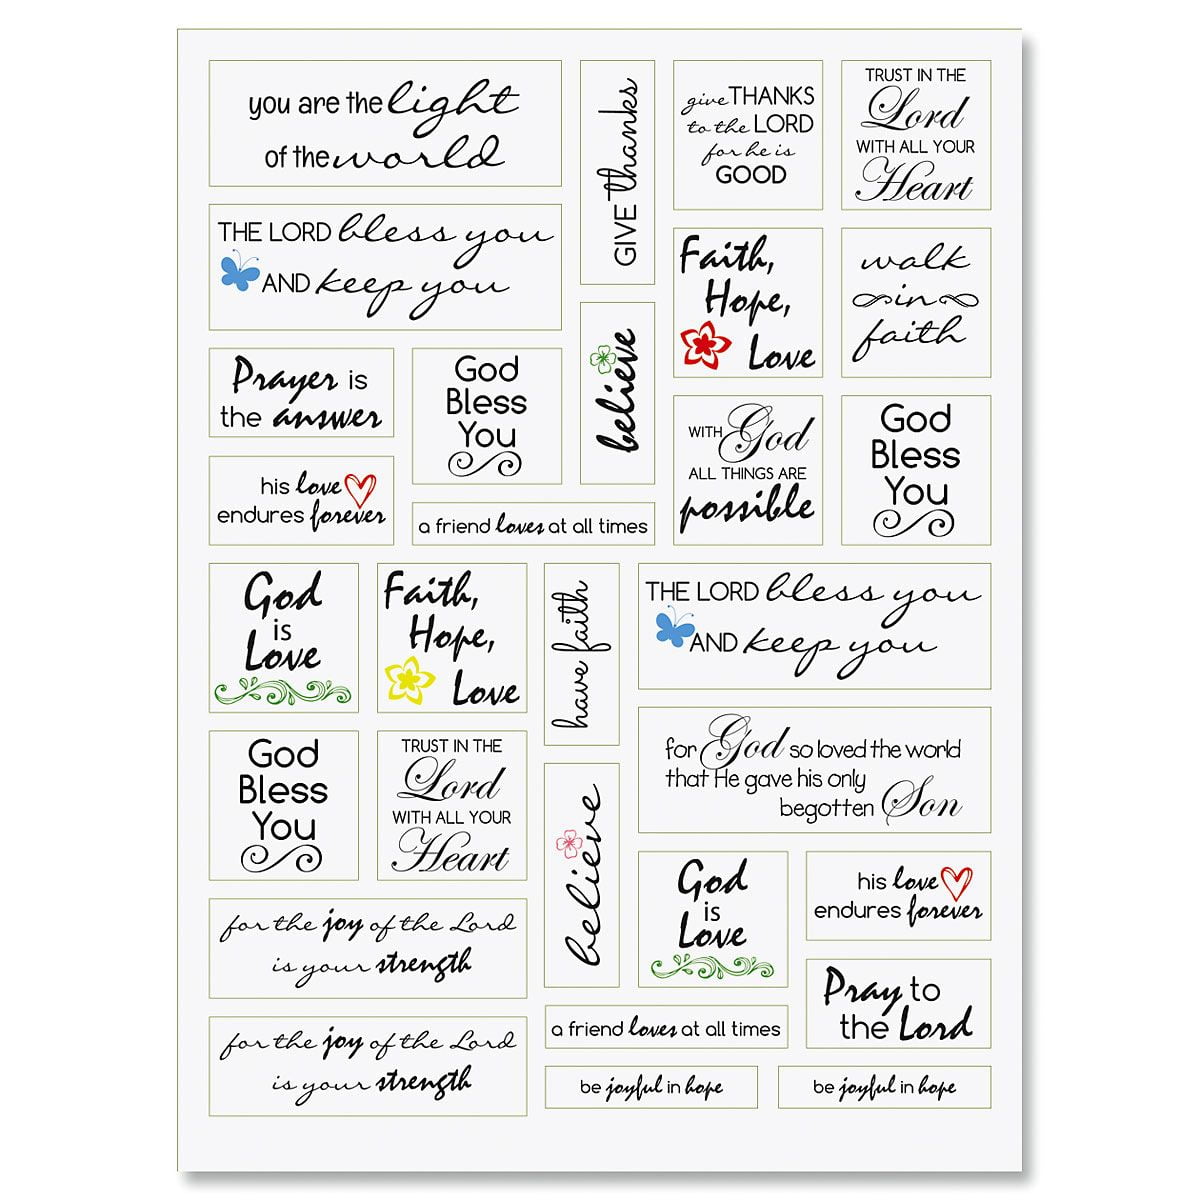 you are the light
of the world
GIVE thanks
give THANKS
to the LORD
for he is
GOOD
TRUST IN THE
Lord
WITH ALL YOUR
Heart
THE LORD bless you
AND keep you
believe
Faith,
Hope,
Love
walk
in
faith
Prayer is
the answer
God
Bless
You
with God
ALL THINGS ARE
possible
God
Bless
You
his love
endures forever
a friend loves at all times
God
is
Love
Faith,
Hope,
Love
have faith
THE LORD bless you
AND keep you
God
Bless
You
TRUST IN THE
Lord
WITH ALL YOUR
Heart
believe
for God so loved the world
that He gave his only
begotten Son
God
is
Love
his love
endures forever
for the joy of the Lord
is your strength
Pray to
the Lord
for the joy of the Lord
is your strength
a friend loves at all times
be joyful in hope
be joyful in hope